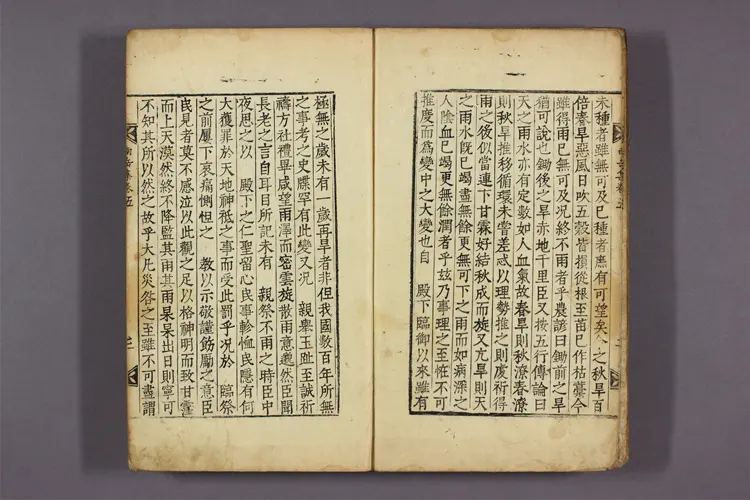 未種者雖無可及已種者應有可望矣今之秋旱百
倍春旱惡風日吹五穀皆損從根至苗已作枯藁今
雖得雨已無可及况終不雨者乎農諺曰鋤前之旱
猶可說也鋤後之旱赤地千里臣又按五行傳論曰
天之雨水亦有定數如人血氣故春旱則秋潦春潦
則秋旱推移循環未嘗差忒以理勢推之則虔祈得
雨之後似當連下甘霖好結秋成而旋又亢旱則天
之雨水旣已竭盡無餘更無可下之雨而如病深之
人陰血已竭更無餘潤者乎玆乃事理之至恠不可
推度而爲變中之大變也自 殿下臨御以來雖有
極無之歲未有一歲再旱者非但我國數百年所無
之事考之史牒罕有此變又况 親舉玉趾至誠祈
禱方社禮畢咸望雨澤而密雲旋散雨意邈然臣聞
長老之言自耳目所記未有 親祭不雨之時臣中
夜思之以 殿下之仁聖留心民事軫恤民隱有何
大獲罪於天地神祗之事而受此罰乎况於 臨祭
之前屢下哀痛惻怛之 敎以示敬謹飭勵之意臣
民見者莫不感泣以此觀之足以格神明而致甘霔
而上天漠然終不降監其雨其雨杲杲出日則寧可
不知其所以然之故乎大凡災咎之至雖不可盡謂